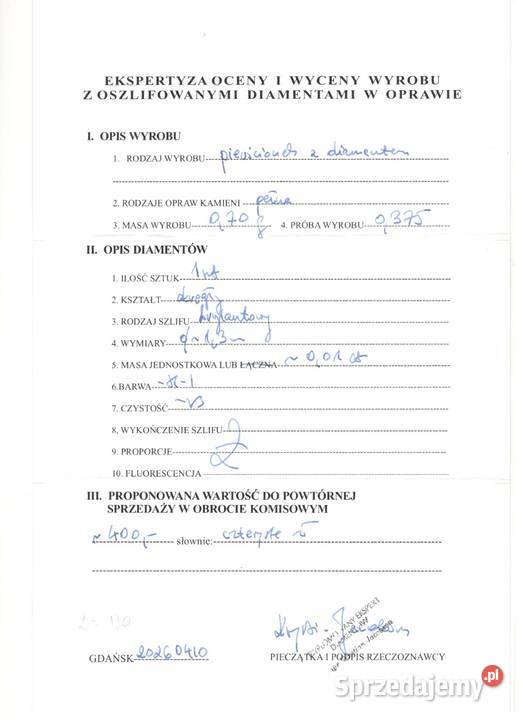 EKSPERTYZA OCENY I WYCENY WYROBU
Z OSZLIFOWANYMI DIAMENTAMI W OPRAWIE
I. OPIS WYROBU
1. RODZAJ WYROBU pierścionek z diamentem
2. RODZAJE OPRAW KAMIENI pełna
3. MASA WYROBU 0,70 g 4. PRÓBA WYROBU 0,375
II. OPIS DIAMENTÓW
1. ILOŚĆ SZTUK 1 szt
2. KSZTAŁT okrągły
3. RODZAJ SZLIFU brylantowy
4. WYMIARY ~1,3
5. MASA JEDNOSTKOWA LUB ŁĄCZNA ~ 0,01 ct
6.BARWA ~H-I
7. CZYSTOŚĆ ~VS
8, WYKOŃCZENIE SZLIFU
9. PROPORCJE
10. FLUORESCENCJA
III. PROPONOWANA WARTOŚĆ DO POWTÓRNEJ
SPRZEDAŻY W OBROCIE KOMISOWYM
~400,- słownie: czterysta zł
GDAŃSK 20260410
PIECZĄTKA I PODPIS RZECZOZNAWCY
Sprzedajemy.pl